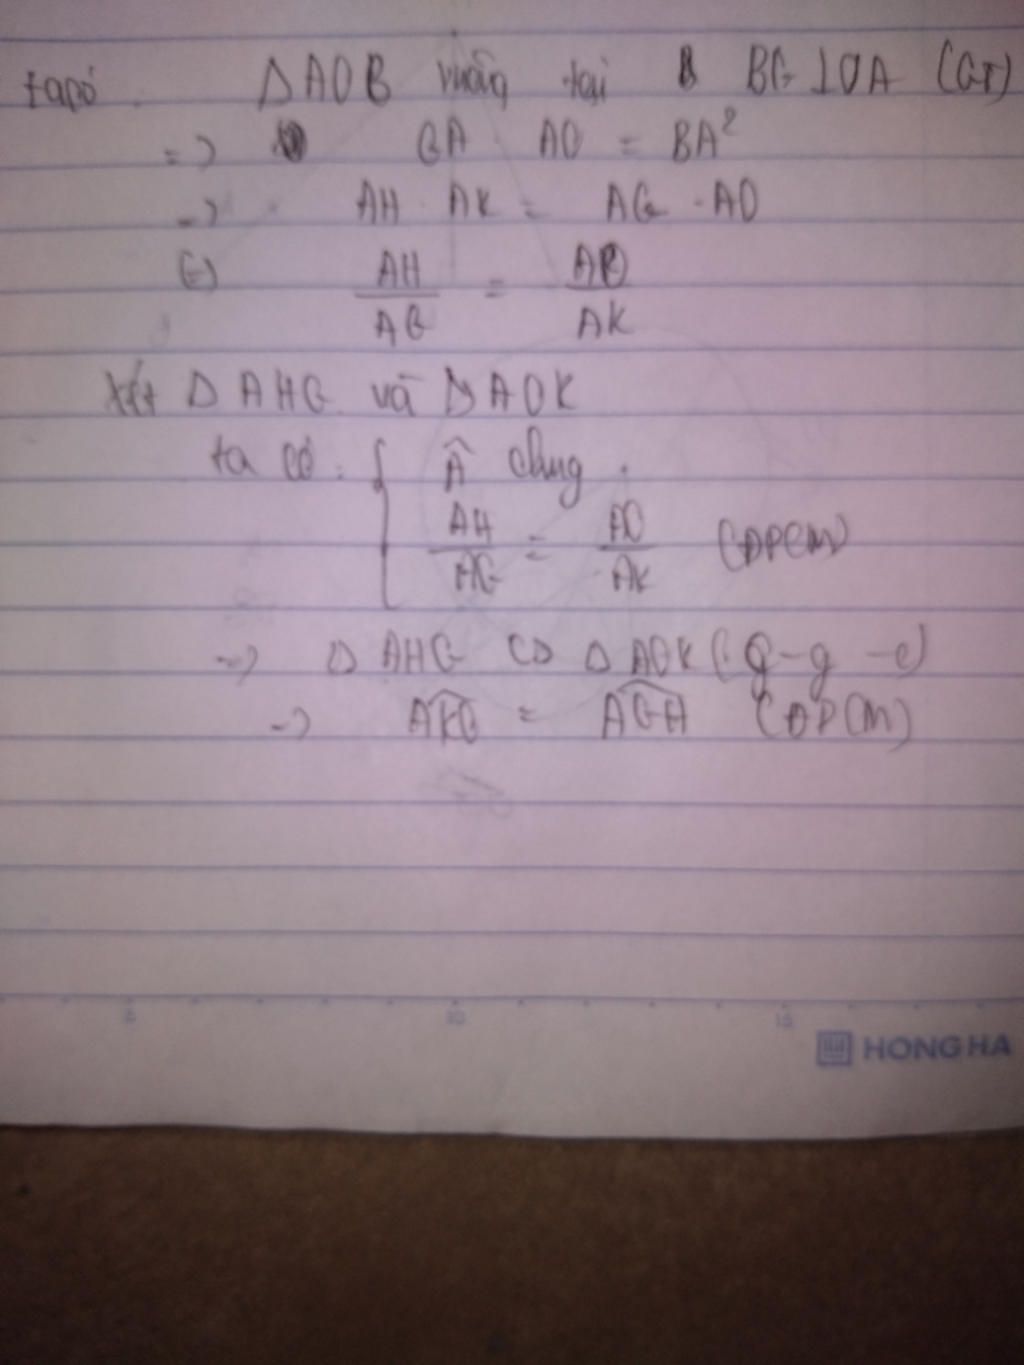 ta có ΔAOB vuông tại B BG ⊥ OA (GT)
=> GA . AO = BA²
=> AH . AK = AG . AO
<=> AH/AG = AO/AK
Xét ΔAHG và ΔAOK
ta có: { Â chung
AH/AG = AO/AK (ĐPCM)
=> ΔAHG ∽ ΔAOK (g-g-c)
=> = AGH (ĐPCM)
10 15
HONG HA